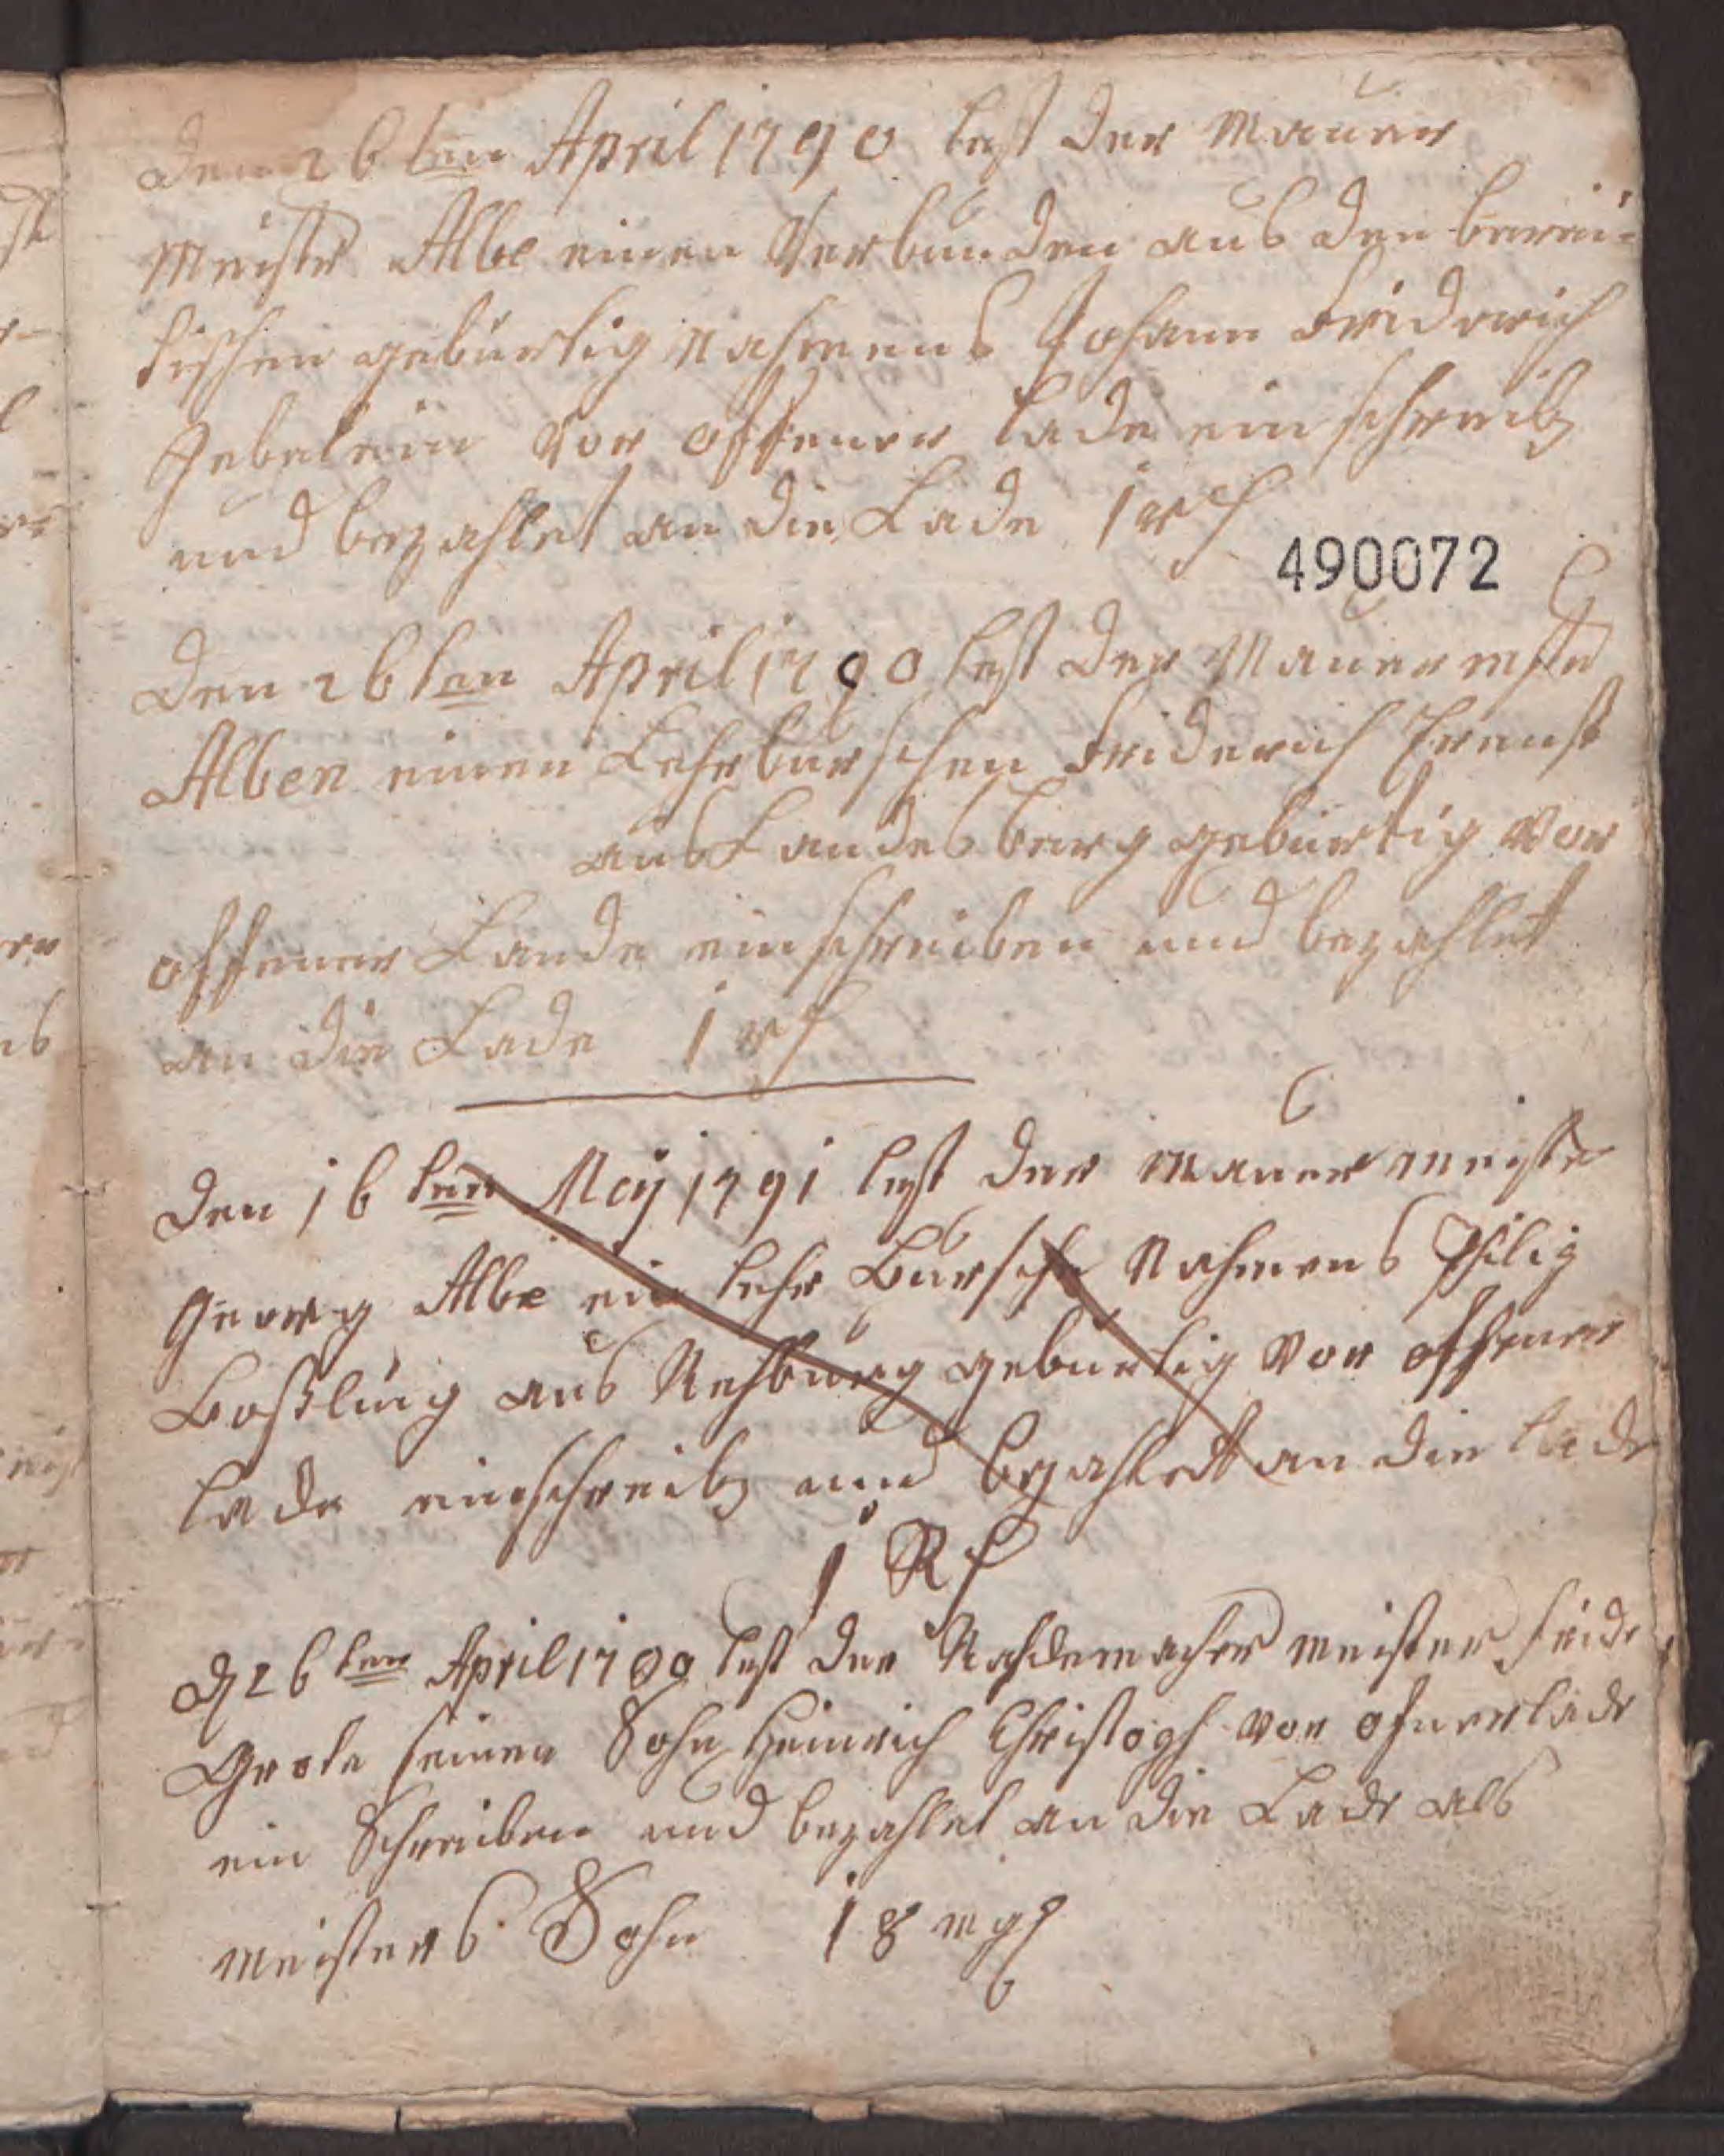 Den 26 ten April 1790 lest der Mauer
Meister Albe einen Verbunden aus den bareu-
tischen gebürtig Nahmens Johann Fridrich
Gebelein vor offener Lade ein schreib
und bezahlet an die Lade 1 rth
490072
Den 26 ten April 1790 lest der Mauer mster
Alben einen Lehrburschen Friderich Ernst
aus Landesberg gebürtig vor
offener Lande einschreiben und bezahlet
an die Lade 1 rth
Den 16 ten Meij 1791 lest der Mauer meister
Georg Albe ein Lehr Bursche Nahmens Philig
Boßling aus Rehburg gebürtig vor offener
lade einschreib und bezahlett an die lade
1 Rth
D 26 ten April 1790 lest der Rahdemacher meister Fride
Grote seinen Sohn Heinrich Christoph vor ofner lade
ein Schreiben und bezahlet an die Lade als
meisters Sohn 18 mgr